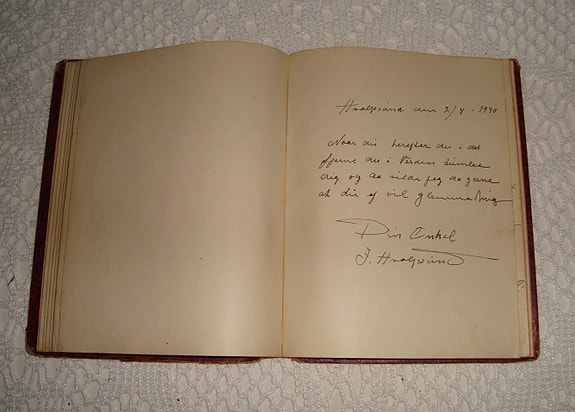 Hvalpsund den 2/8 - 1940
Naar du herefter du i det
fjerne du i Verden tumler
dig og da vilde jeg da gerne
at du ej vil glemme mig
Din Onkel
J. Hvalpsund